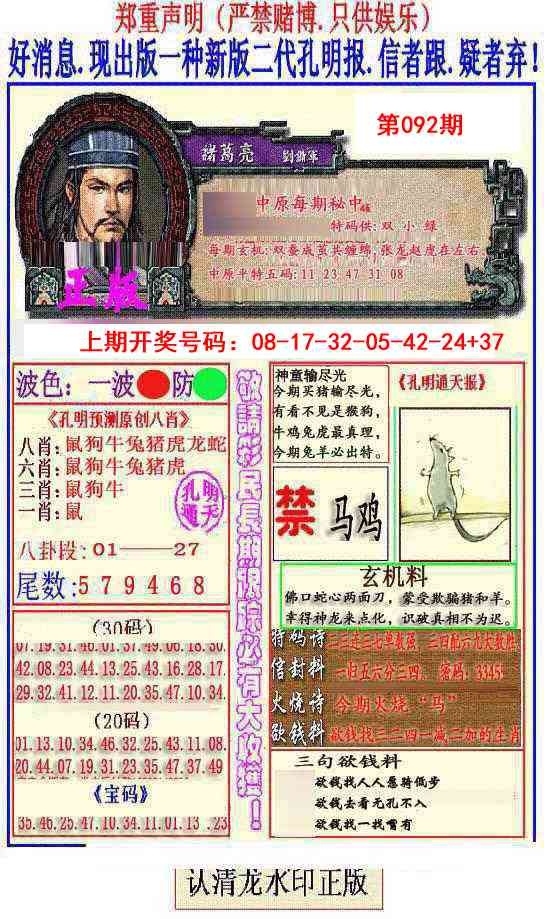 郑重声明（严禁赌博.只供娱乐）
好消息.现出版一种新版二代孔明报.信者跟.疑者弃!
第092期
諸葛亮
中原每期秘中
特码供: 双 小 绿
每期玄机: 双蚕成茧共缠绵, 张龙赵虎在左右
中原平特五码: 11 23 47 31 08
正版
上期开奖号码：08-17-32-05-42-24+37
波色：一波 防
《孔明预测原创八肖》
八肖: 鼠狗牛兔猪虎龙蛇
六肖: 鼠狗牛兔猪虎
三肖: 鼠狗牛
一肖: 鼠
孔明
通天
八卦段: 01——27
尾数: 5 7 9 4 6 8
(30码)
07.19.31.46.01.37.49.06.18.30
42.08.23.44.13.25.43.16.28.17
29.32.41.12.11.20.35.47.10.34
(20码)
01.13.10.34.46.32.25.43.11.08
20.44.07.19.31.23.35.47.37.49
《宝码》
35.46.25.47.10.34.11.01.13 .23
敬請彩民長期跟踪必有大收獲！
神童输尽光
今期买猪输尽光，
有看不见是猴狗，
牛鸡兔虎最真理，
今期兔羊必出特。
《孔明通天报》
禁 马鸡
玄机料
佛口蛇心两面刀，蒙受欺骗猪和羊。
幸得神龙来点化，识破真相不为迟。
特码诗 二三连三七单数强 二四配六九大数胜
信封料 一归五六分三四. 密码: 3345!
火烧诗 今期火烧“马”
欲钱料 欲钱找三二四一减二加的生肖
三句欲钱料
欲钱找人人惹骑低步
欲钱去看无孔不入
欲钱找一找嘴有
认清龙水印正版